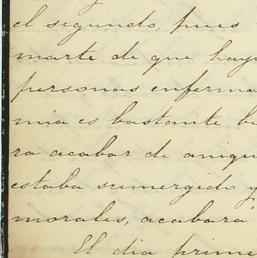 el segundo, pues
marte de que haya
personas enferma
mia es bastante b
ra acabar de aniqu
estaba sumergido y
morales, acabara
El dia prime